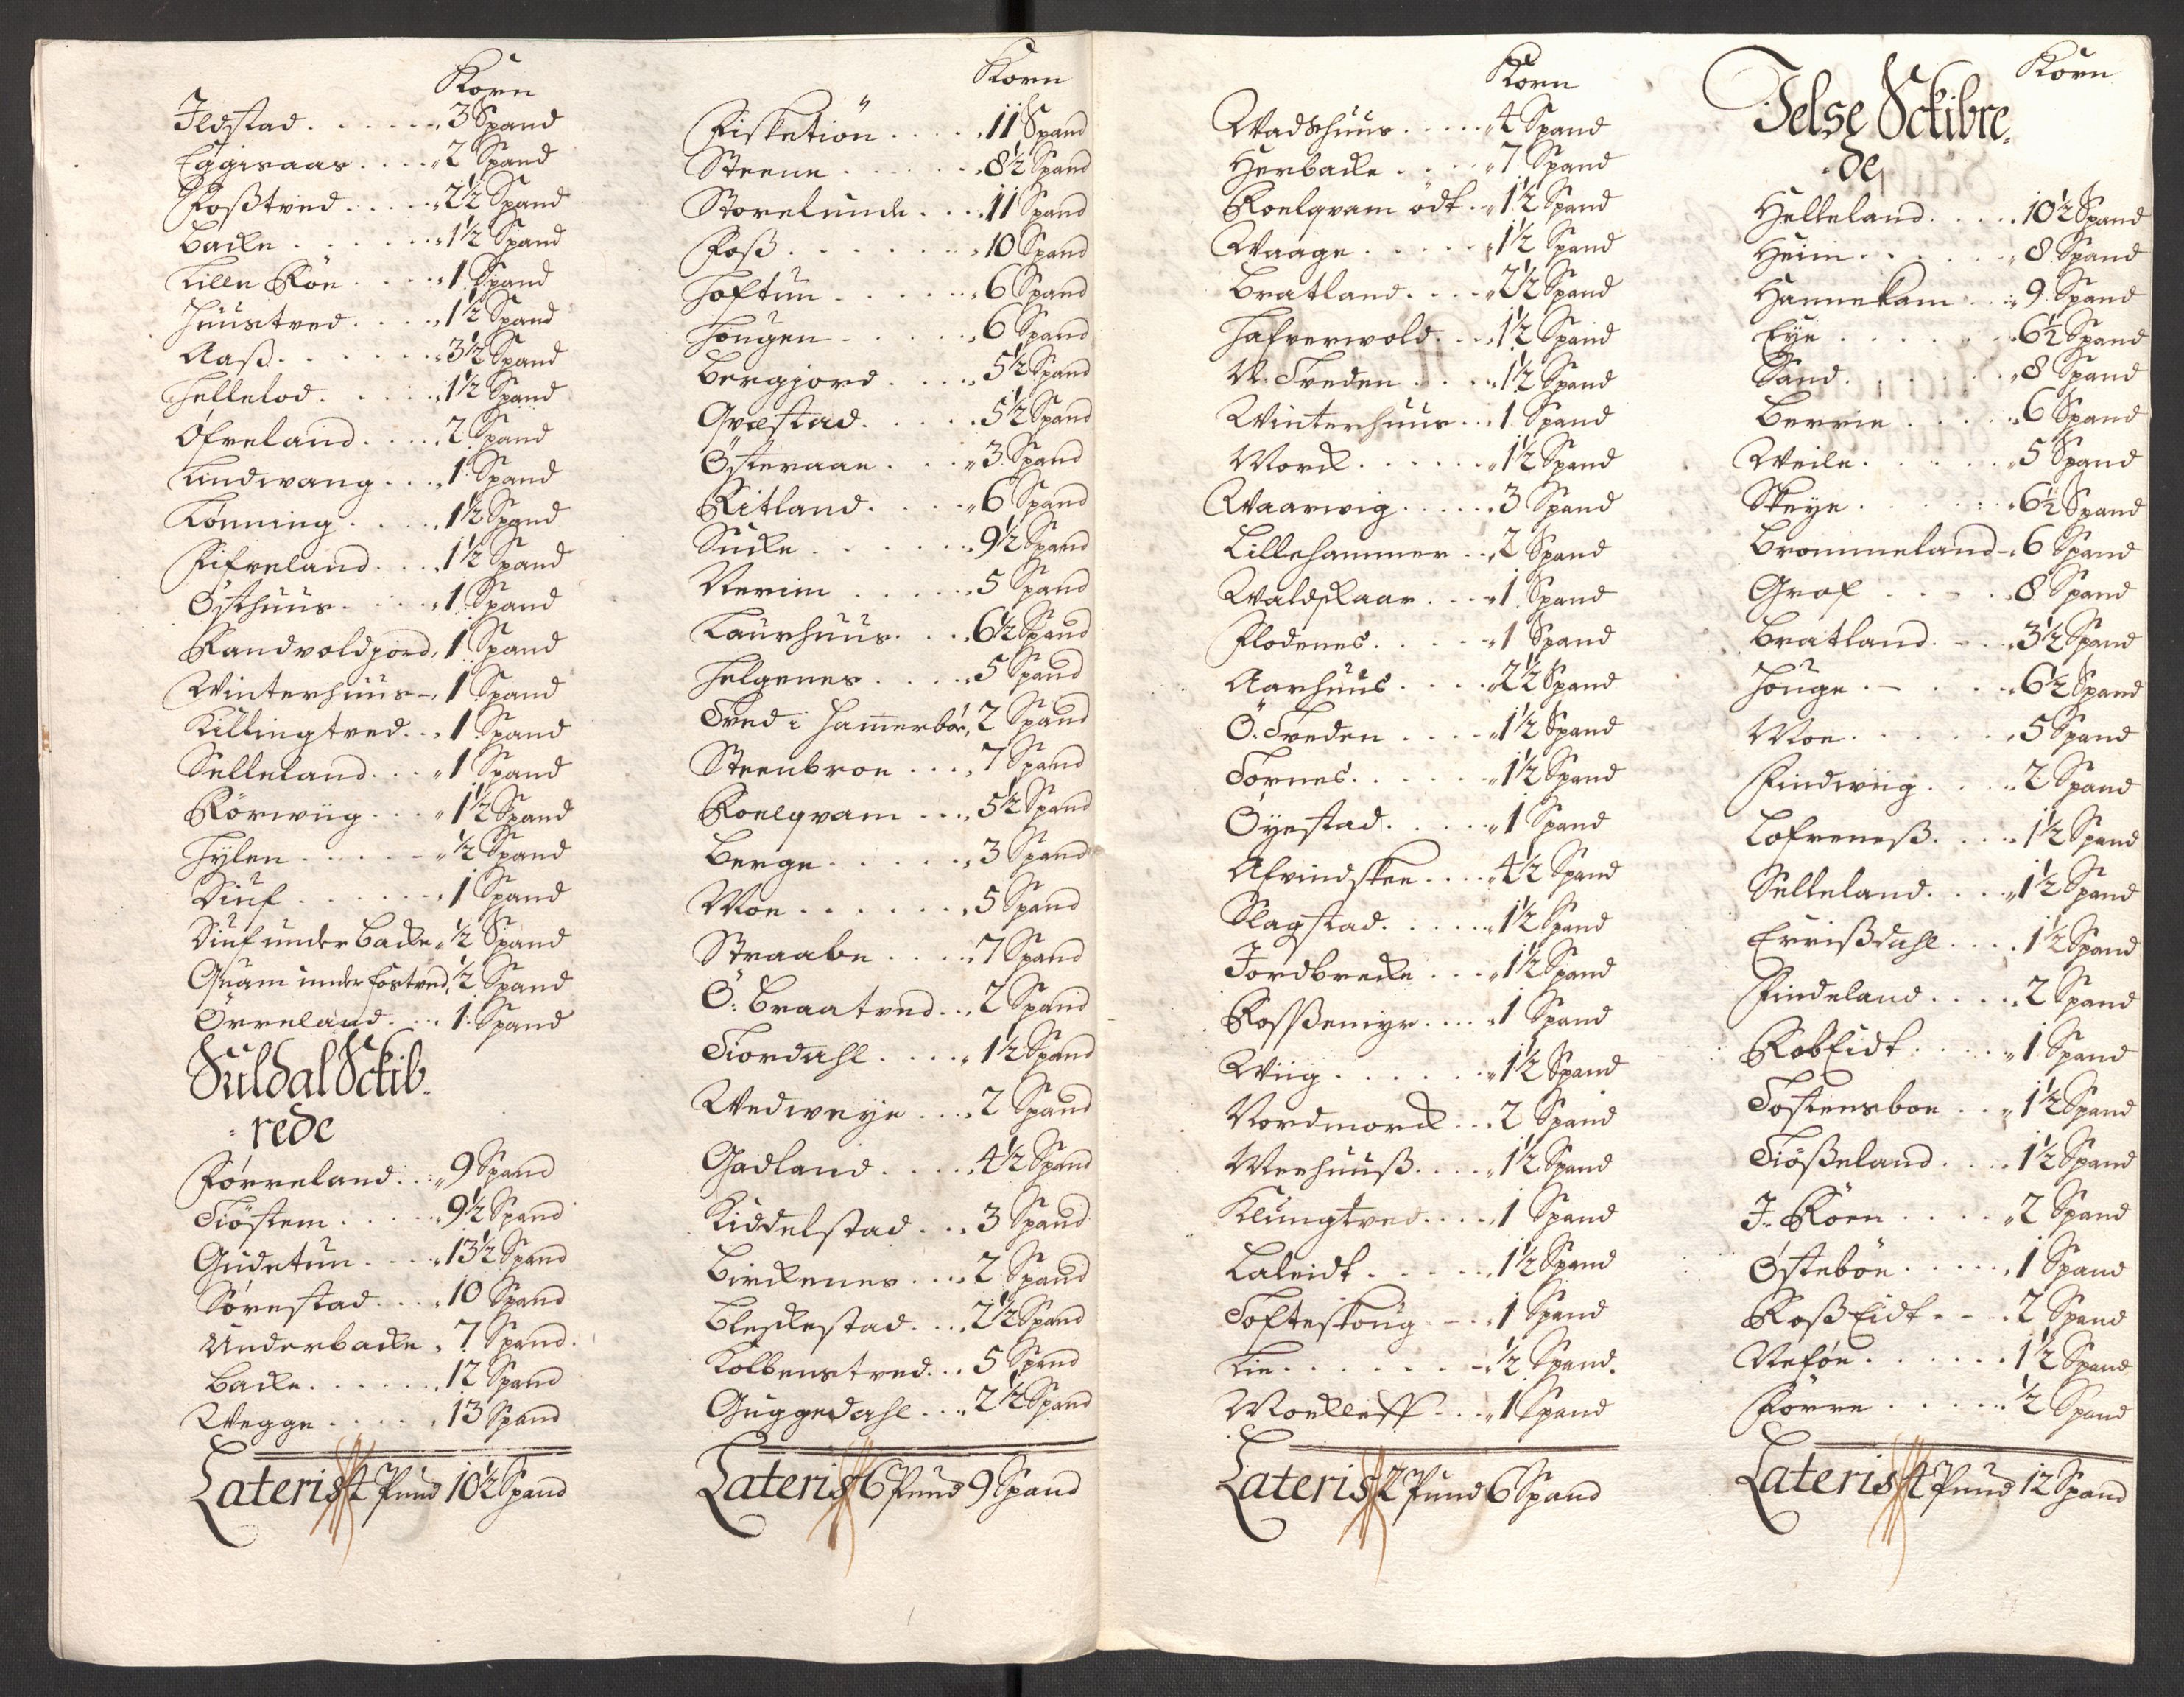 Korn
Ildstad . . . . . 3 Spand
Eggisaas . . . . 2 Spand
Foßtved . . . . 2½ Spand
Backe . . . . . 1½ Spand
Lille Röe . . . . 1 Spand
Huustved . . . . 1½ Spand
Aaß . . . . . 3½ Spand
Hellelod . . . . 1½ Spand
Öfreland . . . . 2 Spand
Lindwang . . . 1 Spand
Lönning . . . . 1½ Spand
Fifreland . . . 1½ Spand
Östhuus . . . . 1 Spand
Randvoldjord, 1 Spand
Winterhuus - 1 Spand
Killingtved . . 1 Spand
Selleland . . . 1 Spand
Rörwiig . . . 1½ Spand
Hylen . . . . . ½ Spand
Diuf . . . . . 1 Spand
Diuf under Backe ½ Spand
Quam under fostved, ½ Spand
Örreland . . . 1 Spand
Suldal Sckib-
rede
Förreland . . . 9 Spand
Tiöstem . . . . 9½ Spand
Gudetun . . . 13½ Spand
Sörestad . . . 10 Spand
Underbacke . 7 Spand.
Backe . . . . . 12 Spand
Wegge . . . . . 13 Spand
Lateris 4 Pund 10½ Spand
Korn
Fisketiön . . . . 11 Spand
Steene . . . . . 8½ Spand
Storelunde . . . 11 Spand
Foß . . . . . . 10 Spand
Hoftun . . . . . 6 Spand
Hougen . . . . . 6 Spand
Bergjord . . . . 5½ Spand
Qvestad . . . . . 5½ Spand
Österaae . . . 3 Spand
Ritland . . . . 6 Spand
Sucke . . . . . 9½ Spand
Nerim . . . . . 5 Spand
Laurhuus . . . 6½ Spand
Helgenes . . . . 5 Spand
Tved i Hamerböe, 2 Spand
Steenbroe . . . 7 Spand
Roelqvam . . . 5½ Spand
Berge . . . . . 3 Spand
Moe . . . . . . 5 Spand
Straabe . . . . 7 Spand
Ö: Braatved . . 2 Spand
Tiordahl . . . . 1½ Spand
Wedweye . . . 2 Spand
Gadland . . . . 4½ Spand
Kiddelstad . . . 3 Spand
Birckenes . . . 2 Spand
Bleskestad . . . 2½ Spand
Kolbenstved . . 5 Spand
Guggedahl . . . 2½ Spand
Lateris 6 Pund 9 Spand
Korn
Wadshuus . . . . 4 Spand
Herbacke . . . 7 Spand
Roelqvam ödt . . 1½ Spand
Waage . . . . . 1½ Spand
Bratland . . . . 2½ Spand
Hafrerwold . . . 1½ Spand
N. Treden . . . 1½ Spand
Winterhuus . . 1 Spand
Morck . . . . . 1½ Spand
Waarwig . . . . . 3 Spand
Lillehammer . . 2 Spand
Waldskaar . . . 1 Spand
Flodenes . . . . 1 Spand
Aarhuus . . . . 2½ Spand
Ö. Treden . . . . 1½ Spand
Tornes . . . . . 1½ Spand
Öyestad . . . . . 1 Spand
Afvindskee . . . 4½ Spand
Slagstad . . . . . 1½ Spand
Jordbrecke . . . 1½ Spand
Roßßemyr . . . . 1 Spand
Wiig . . . . . . 1½ Spand
Nordmorck . . 2 Spand
Meehuuß . . . . 1½ Spand
Klungtved . . . . 1 Spand
Laleidt . . . . . 1½ Spand
Tofteskoug . . . 1 Spand
Lie . . . . . . . ½ Spand.
Moekleff . . . 1 Spand
Lateris 2 Pund 6 Spand
Korn
Jelse Sckibre-
de
Helleland . . . . 10½ Spand
Heim . . . . . . 8 Spand
Hannekam . . . 9 Spand
Eye . . . . . . 6½ Spand
Sand . . . . . . 8 Spand
Berrie . . . . . 6 Spand
Weile . . . . . 5 Spand
Skeye . . . . . 6½ Spand
Brommeland . . 6 Spand
Grof . . . . . . 8 Spand
Bratland . . . . 3½ Spand
Houge . . . . . . 6½ Spand
Moe . . . . . . 5 Spand
Findwiig . . . . 2 Spand
Lofreneß . . . . 1½ Spand
Selleland . . . . 1½ Spand
Errißdahl . . . . 1½ Spand
Findeland . . . . 2 Spand
Rob Eidt . . . . . 1 Spand
Tostensboe . . . 1½ Spand
Tiößeland . . . . 1½ Spand
I. Röen . . . . . 2 Spand
Östeböe . . . . . 1 Spand
Roß Eidt . . . 2 Spand
Neföe . . . . . . 1½ Spand
Förre . . . . . ½ Spand
Lateris 4 Pund 12 Spand